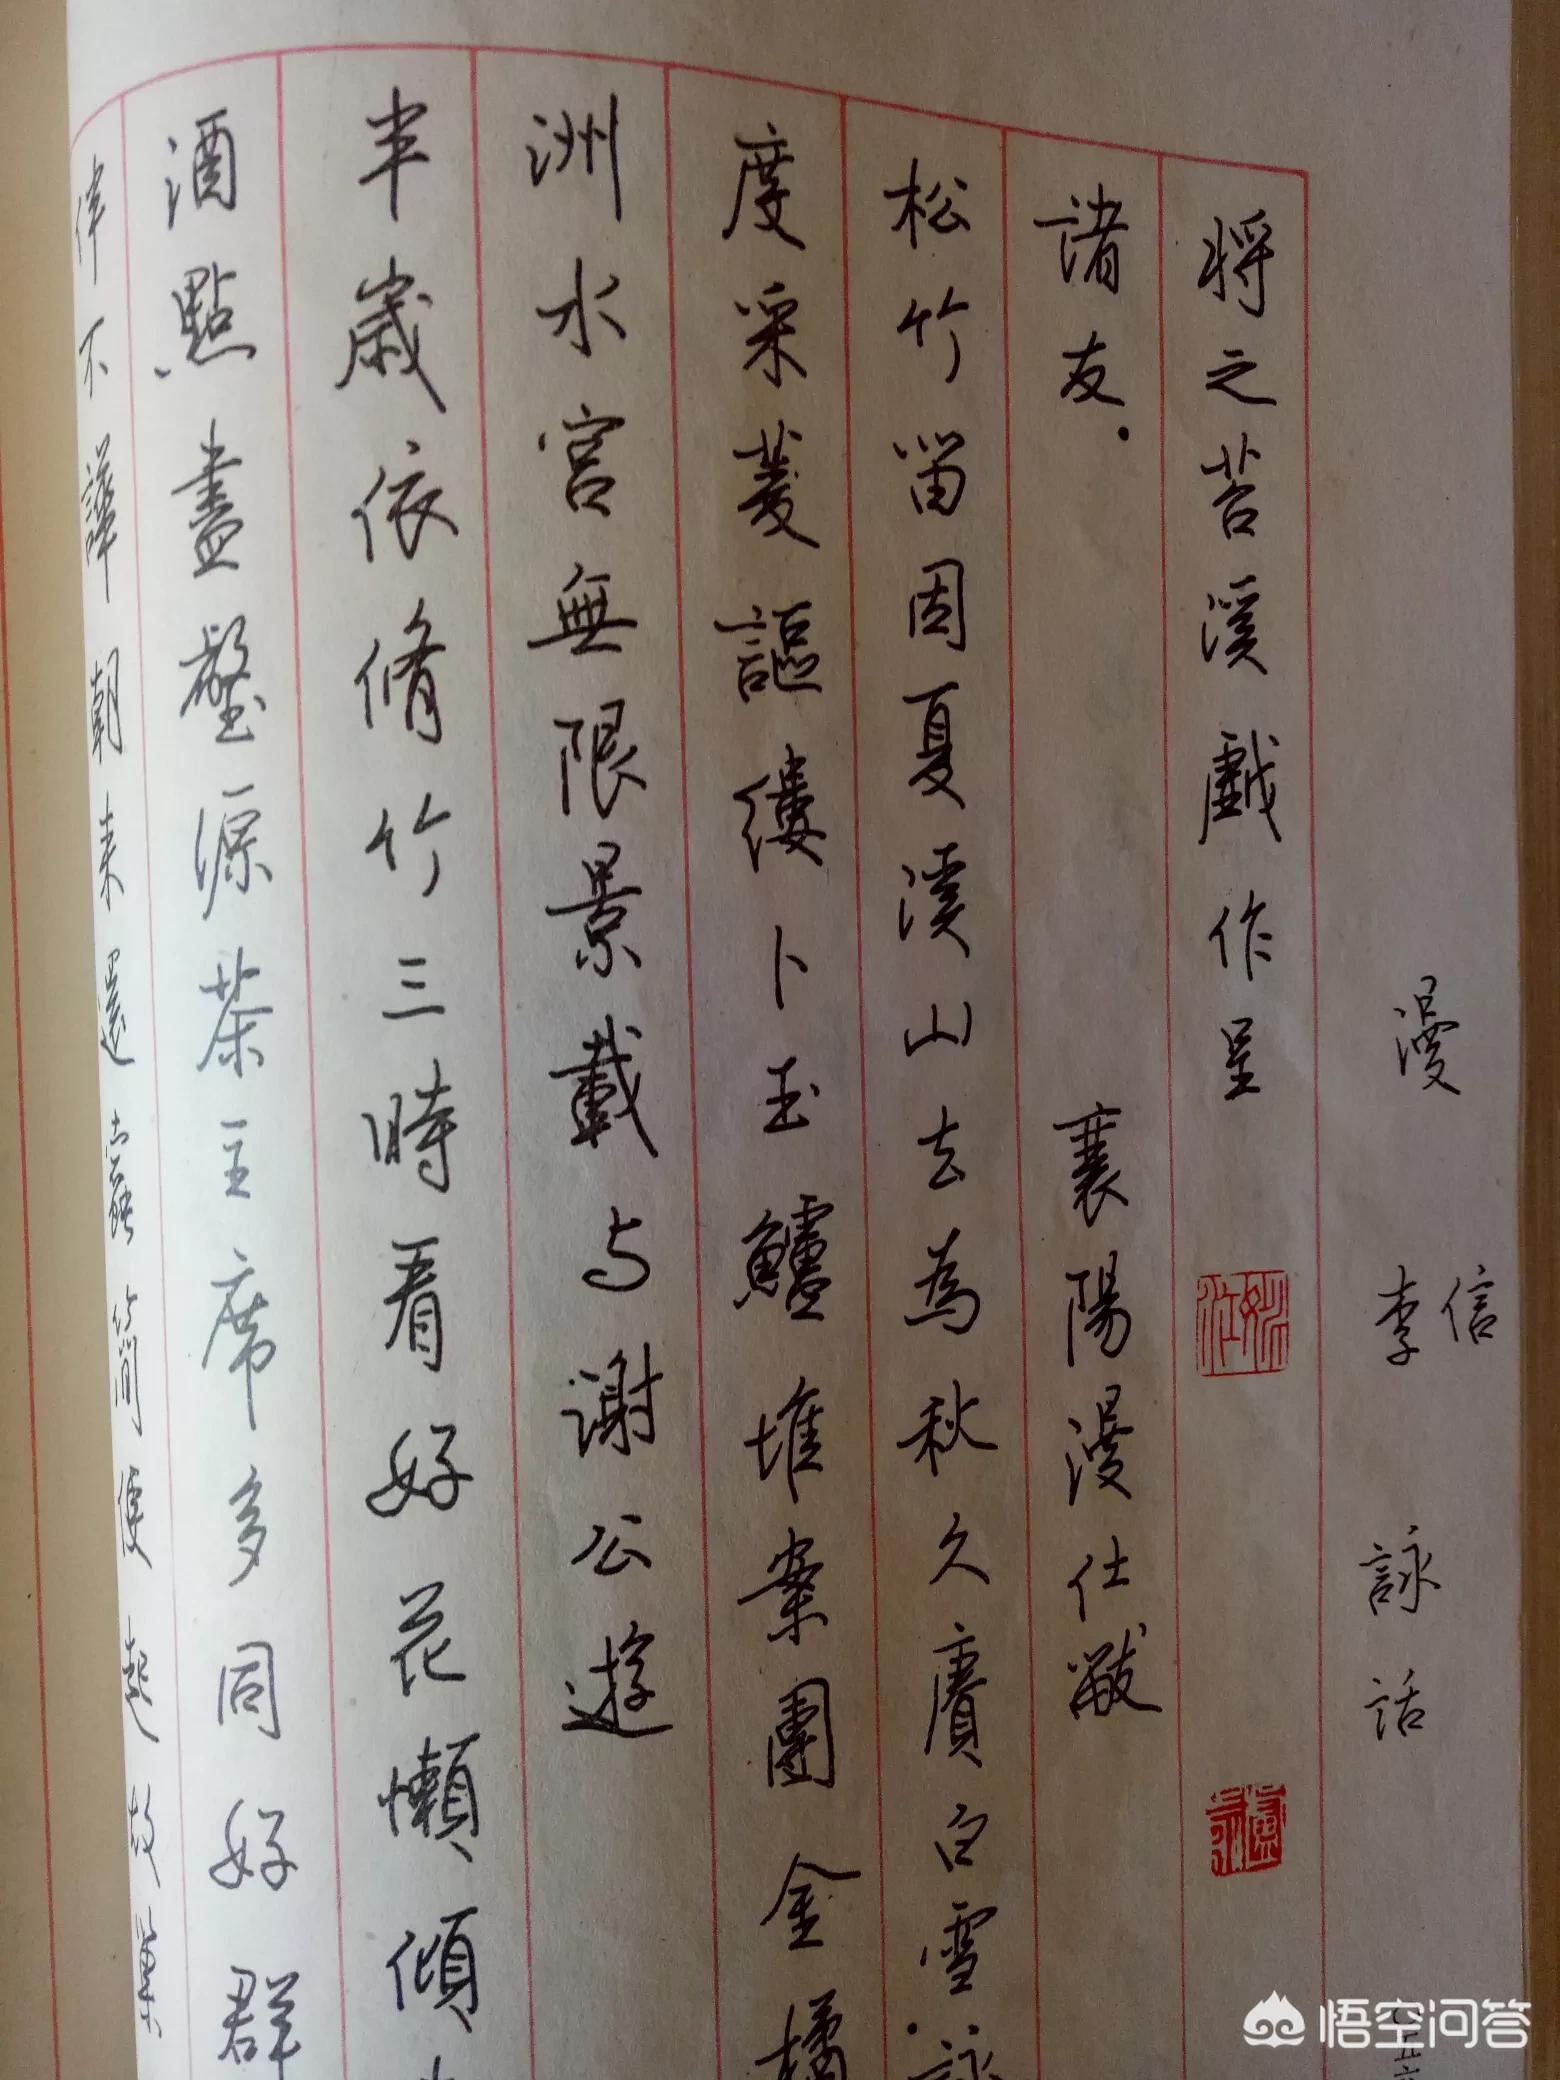 漫
信
李
詠話
将之苕溪戯作呈
諸友.
襄陽漫仕黻
松竹留因夏溪山去為秋久賡白雪詠
度采菱謳縷卜玉鱸堆案團金橘
洲水宮無限景載与謝公遊
半歲依脩竹三時看好花懶傾
酒點盡壑源茶主席多同好群
伴不譁朝来還蠹簡便起故巢
悟空问答